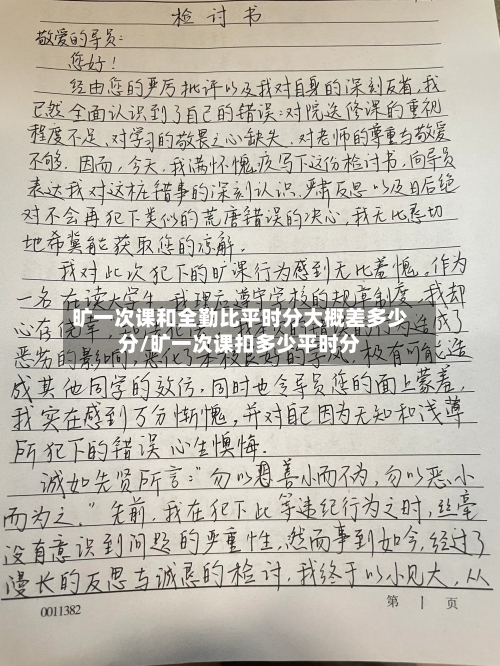 检讨书
敬爱的导员:
您好!
经由您的严厉批评以及我对自身的深刻反省,我
已然全面认识到了自己的错误:对院选修课的重视
程度不足,对学习的敬畏之心缺失,对老师的尊重与敬爱
不够.因而,今天,我满怀愧疚写下这份检讨书,向导员
表达我对这桩错事的深刻认识.严肃反思以及日后绝
对不会再犯下类似的荒唐错误的决心,我无比恳切
地希冀能获取您的谅解.
我对此次犯下的旷课行为感到无比羞愧,作为
一名在读大学生,我理应遵守学校的规章制度,我却
心存侥幸,
旷一次课和全勤比平时分大概差多少
成了
恶劣的影响,
分/旷一次课扣多少平时分
极有可能造
成其他同学的效仿,同时也令导员您的面上蒙羞,
我实在感到万分惭愧,并对自己因为无知和浅薄
所犯下的错误心生懊悔.
诚如先贤所言:"勿以善小而不为,勿以恶小
而为之."先前,我在犯下此等违纪行为之时,丝毫
没有意识到问题的严重性,然而事到如今,经过了
漫长的反思与诚恳的检讨,我终于以小见大,从
0011382
第1页